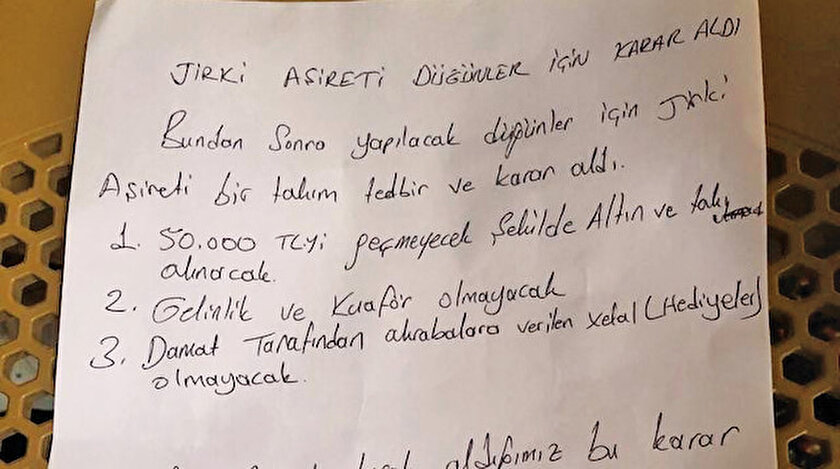 JİRKİ AŞİRETİ DÜĞÜNLER İÇİN KARAR ALDI
Bundan Sonra yapılacak düğünler için Jirki
Aşireti bir takım tedbir ve karar aldı.
1. 50.000 TLyi geçmeyecek Şekilde Altın ve takı
alınacak.
2. Gelinlik ve Kuaför olmayacak
3. Damat Tarafından akrabalara verilen Xelat (Hediyeler)
olmayacak.
aldığımız bu karar